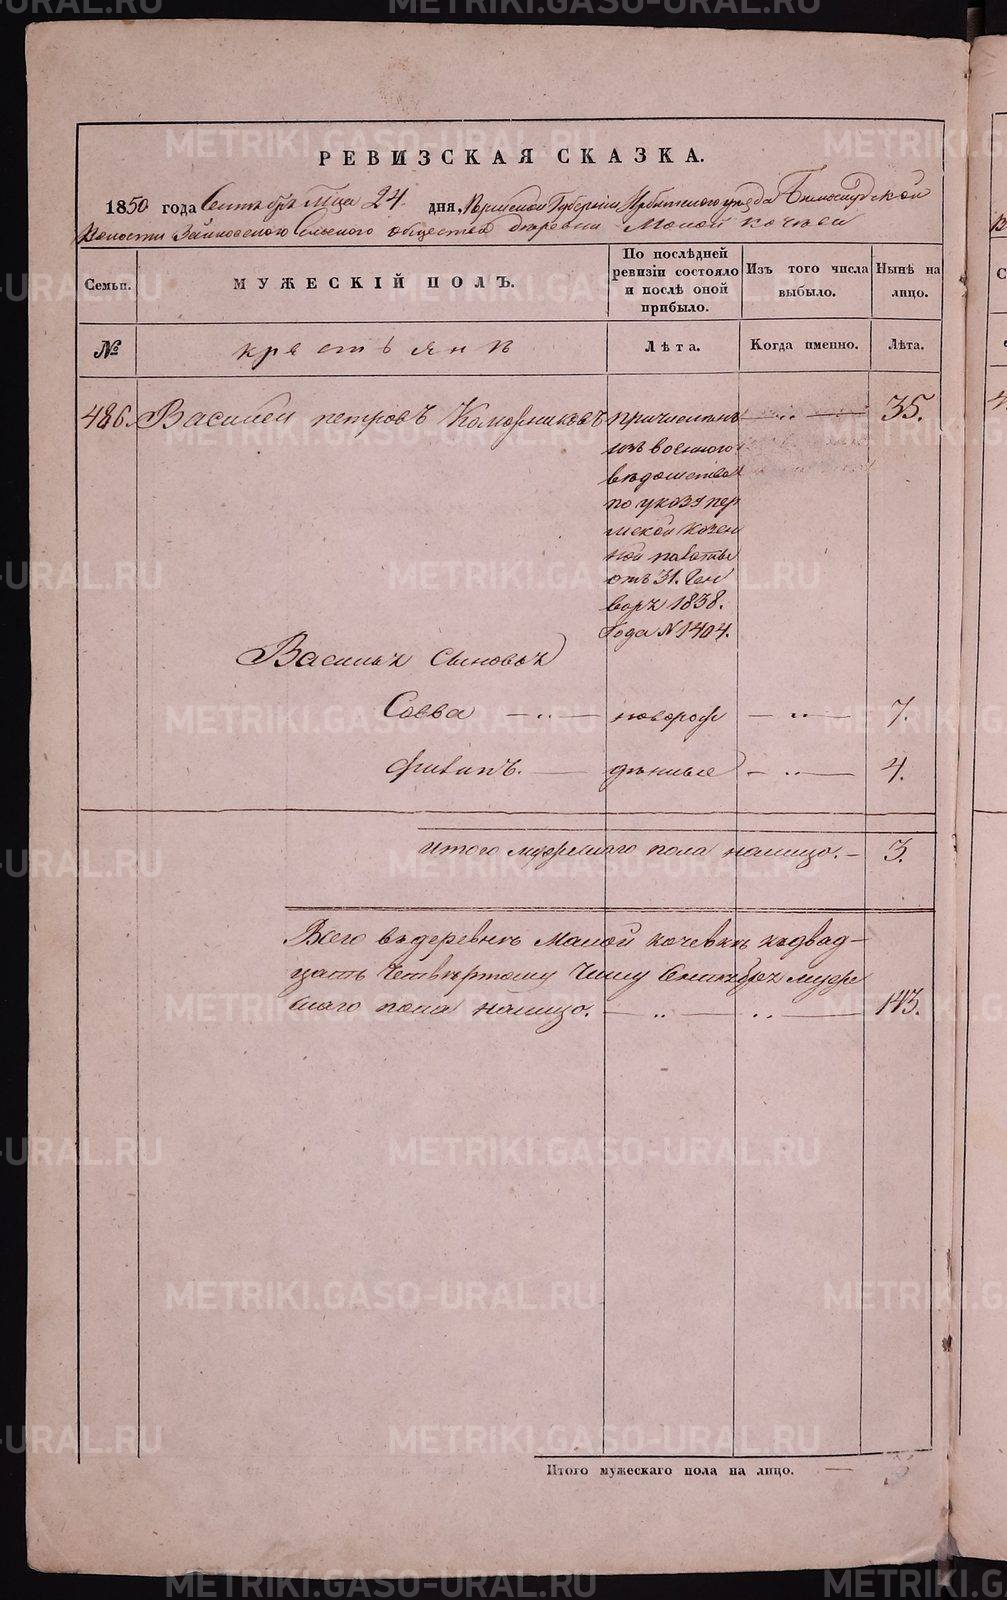 РЕВИЗСКАЯ СКАЗКА.
1850 года Сентября Мца 24 дня, Пермской Губернии Ирбитского уезда Белослудской
Волости Зайковского Сельского общества деревни Малой кочевки
Семьи.
МУЖЕСКІЙ ПОЛЪ.
По послѣдней ревизіи состояло и послѣ оной прибыло.
Изъ того числа выбыло.
Нынѣ на лицо.
№
крестьянъ
Лѣта.
Когда именно.
Лѣта.
486. Василей петровъ Коморниковъ причисленъ — ·· — 35.
изъ военного
вѣдомства
по указу пер
мской казен
ной палаты
отъ 31. Ген
варя 1838.
Года N 1404.
Василья сыновья
Савва — ·· — новорож — ·· — 7.
Филипъ. — денные — ·· — 4.
итого мужескаго пола налицо. — 3.
Всего въ деревнѣ Малой кочевкѣ къ двад–
цать четвертому числу Сентября муже
скаго пола налицо. — ·· — ·· — 143.
Итого мужескаго пола на лицо. — 3
METRIKI.GASO-URAL.RU